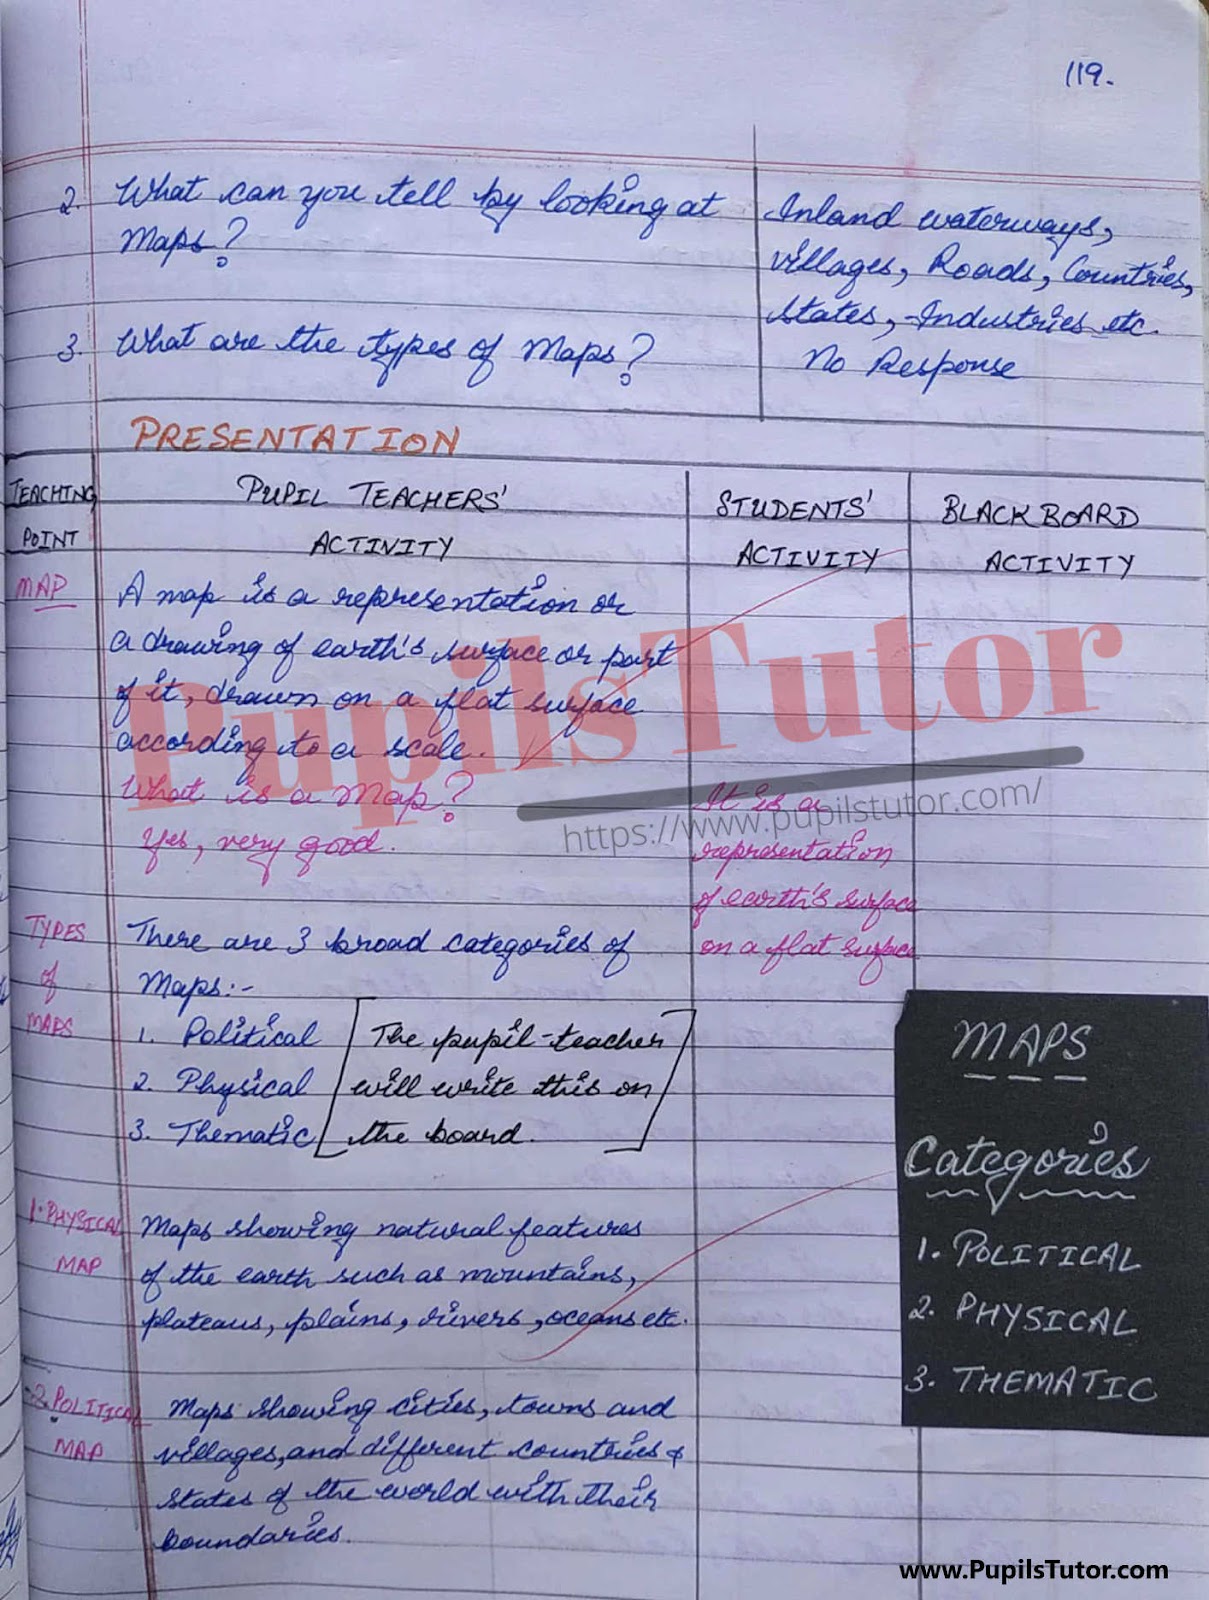 119.
2. What can you tell by looking at
Maps?
Inland waterways,
villages, Roads, Countries,
States, Industries etc.
3. What are the types of Maps?
No Response
PRESENTATION
TEACHING
POINT
PUPIL TEACHERS'
ACTIVITY
STUDENTS'
ACTIVITY
BLACK BOARD
ACTIVITY
MAP
A map is a representation or
a drawing of earth's surface or part
of it, drawn on a flat surface
according to a scale.
What is a Map?
Yes, very good.
It is a
representation
of earth's surface
on a flat surface
PupilsTutor
https://www.pupilstutor.com/
TYPES
of
MAPS
There are 3 broad categories of
Maps:-
1. Political
2. Physical
3. Thematic
[The pupil-teacher
will write this on
the board.]
MAPS
Categories
1. POLITICAL
2. PHYSICAL
3. THEMATIC
1. PHYSICAL
MAP
Maps showing natural features
of the earth such as mountains,
plateaus, plains, rivers, oceans etc.
2. POLITICAL
MAP
Maps showing cities, towns and
villages, and different countries &
states of the world with their
boundaries.
www.PupilsTutor.com